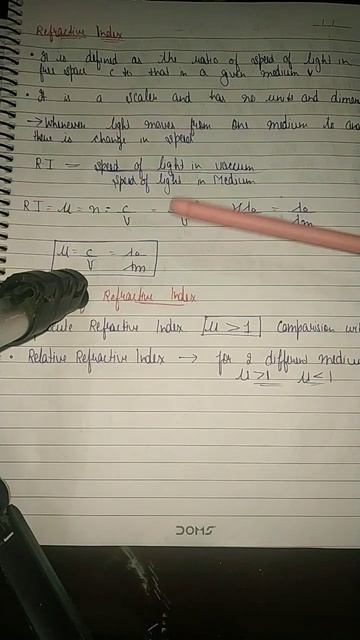 Refractive Index
• It is defined as the ratio of speed of light in
free space c to that in a given medium v
• It is a scaler and has no units and dimen
→ Whenever light moves from one medium to an
there is change in speed
RI = speed of light in vaccum
speed of light in Medium
RI = μ = n = c/v = λ0/λm
μ = c/v = λ0/λm
Refractive Index
Refractive Index μ > 1 Comparision wi
• Relative Refractive Index → for 2 different medium
μ > 1 μ < 1
DOMS